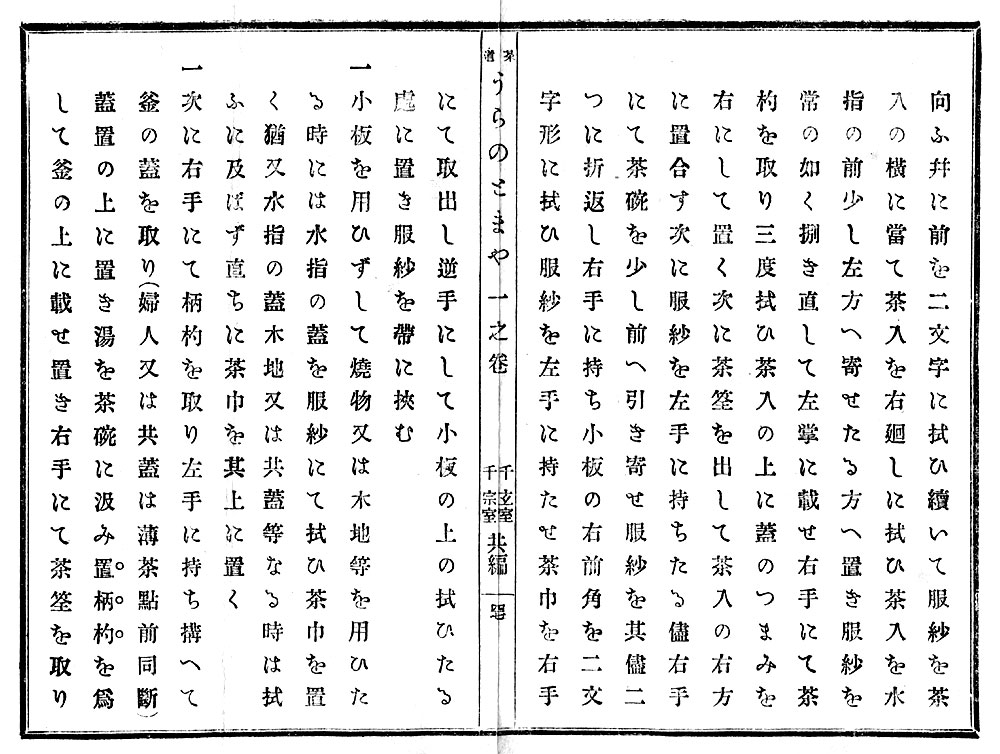 向ふ幷に前を二文字に拭ひ續いて服紗を茶
入の橫に當て茶入を右廻しに拭ひ茶入を水
指の前少し左方へ寄せたる方へ置き服紗を
常の如く捌き直して左掌に載せ右手にて茶
杓を取り三度拭ひ茶入の上に蓋のつまみを
右にして置く次に茶筌を出して茶入の右方
に置合す次に服紗を左手に持ちたる儘右手
にて茶碗を少し前へ引き寄せ服紗を其儘二
つに折返し右手に持ち小板の右前角を二文
字形に拭ひ服紗を左手に持たせ茶巾を右手
茶道
うらのとまや 一之卷
千玄室
千宗室
共編
にて取出し逆手にして小板の上の拭ひたる
處に置き服紗を帶に挾む
一小板を用ひずして燒物又は木地等を用ひた
る時には水指の蓋を服紗にて拭ひ茶巾を置
く猶又水指の蓋木地又は共蓋等なる時は拭
ふに及ばず直ちに茶巾を其上に置く
一次に右手にて柄杓を取り左手に持ち搆へて
釜の蓋を取り(婦人又は共蓋は薄茶點前同斷)
蓋置の上に置き湯を茶碗に汲み置。柄。杓。を爲
して釜の上に載せ置き右手にて茶筌を取り